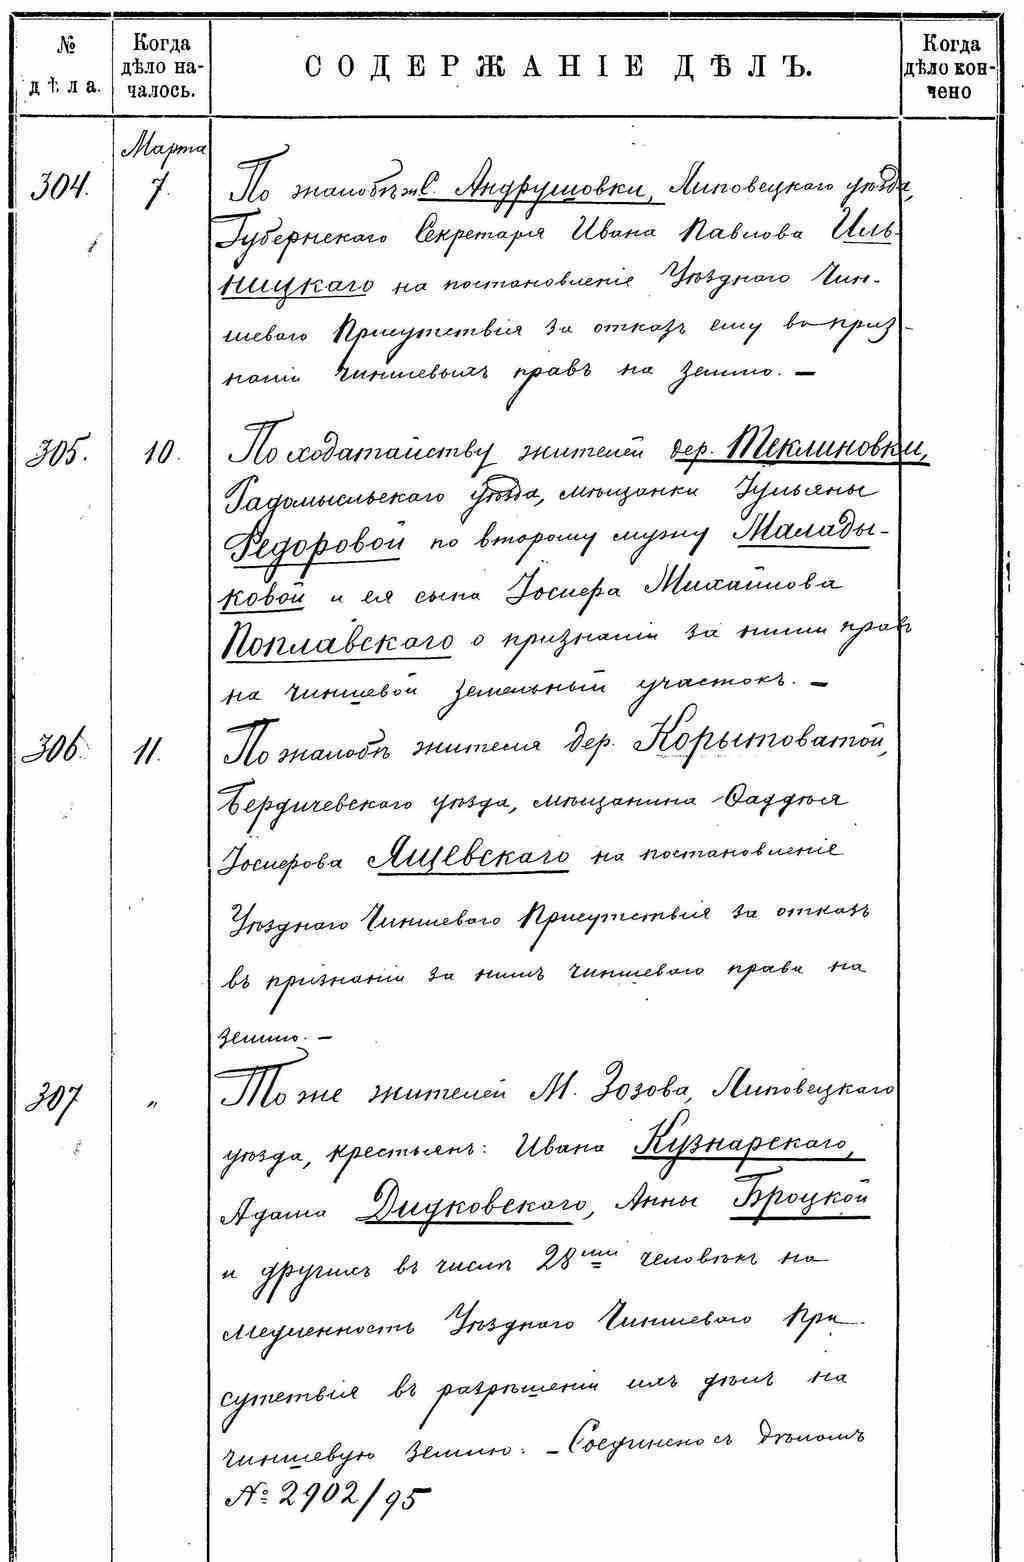 №
дѣла.
Когда
дѣло на-
чалось.
СОДЕРЖАНІЕ ДѢЛЪ.
Когда
дѣло кон-
чено
Марта
304.
7.
По жалобѣ ж. С. Андрушовки, Липовецкаго уѣзда,
Губернскаго Секретаря Ивана Павлова Иль-
ницкаго на постановленіе Уѣзднаго Чин-
шеваго Присутствія за отказъ ему въ приз-
наніи чиншевыхъ правъ на землю. —
305.
10.
По ходатайству жителей дер. Теклиновки,
Радомысльскаго уѣзда, мѣщанки Іульяны
Федоровой по второму мужу Малады-
ковой и ея сына Іосифа Михайлова
Поплавскаго о признаніи за ними правъ
на чиншевой земельный участокъ. —
306.
11.
По жалобѣ жителя дер. Корытоватой,
Бердичевскаго уѣзда, мѣщанина Фаддѣя
Іосифова Ящевскаго на постановленіе
Уѣзднаго Чиншеваго Присутствія за отказъ
въ признаніи за нимъ чиншеваго права на
землю. —
307
"
То же жителей М. Зозова, Липовецкаго
уѣзда, крестьянъ: Ивана Кузнарскаго,
Адама Дидковскаго, Анны Броцкой
и другихъ въ числѣ 28ми человѣкъ на
медленность Уѣзднаго Чиншеваго При-
сутствія въ разрѣшеніи ихъ дѣлъ на
чиншевую землю. — Соединено съ дѣломъ
№ 2902/95